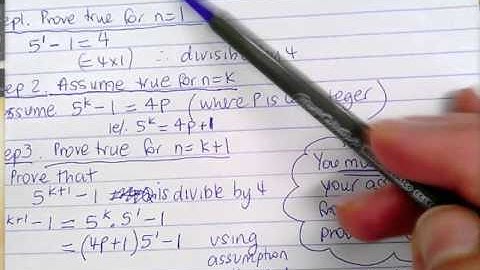 ep1. Prove true for n=1
5¹-1=4
(=4×1) ∴ divisible by 4
ep 2. Assume true for n=k
ssume 5ᵏ-1=4P (where P is an integer)
ie/. 5ᵏ=4P+1
ep3. Prove true for n=k+1
Prove that
5ᵏ⁺¹-1 is divible by 4
ᵏ⁺¹-1 = 5ᵏ.5¹-1
=(4P+1)5¹-1 using
assumption
You mu
your as
fr
prov